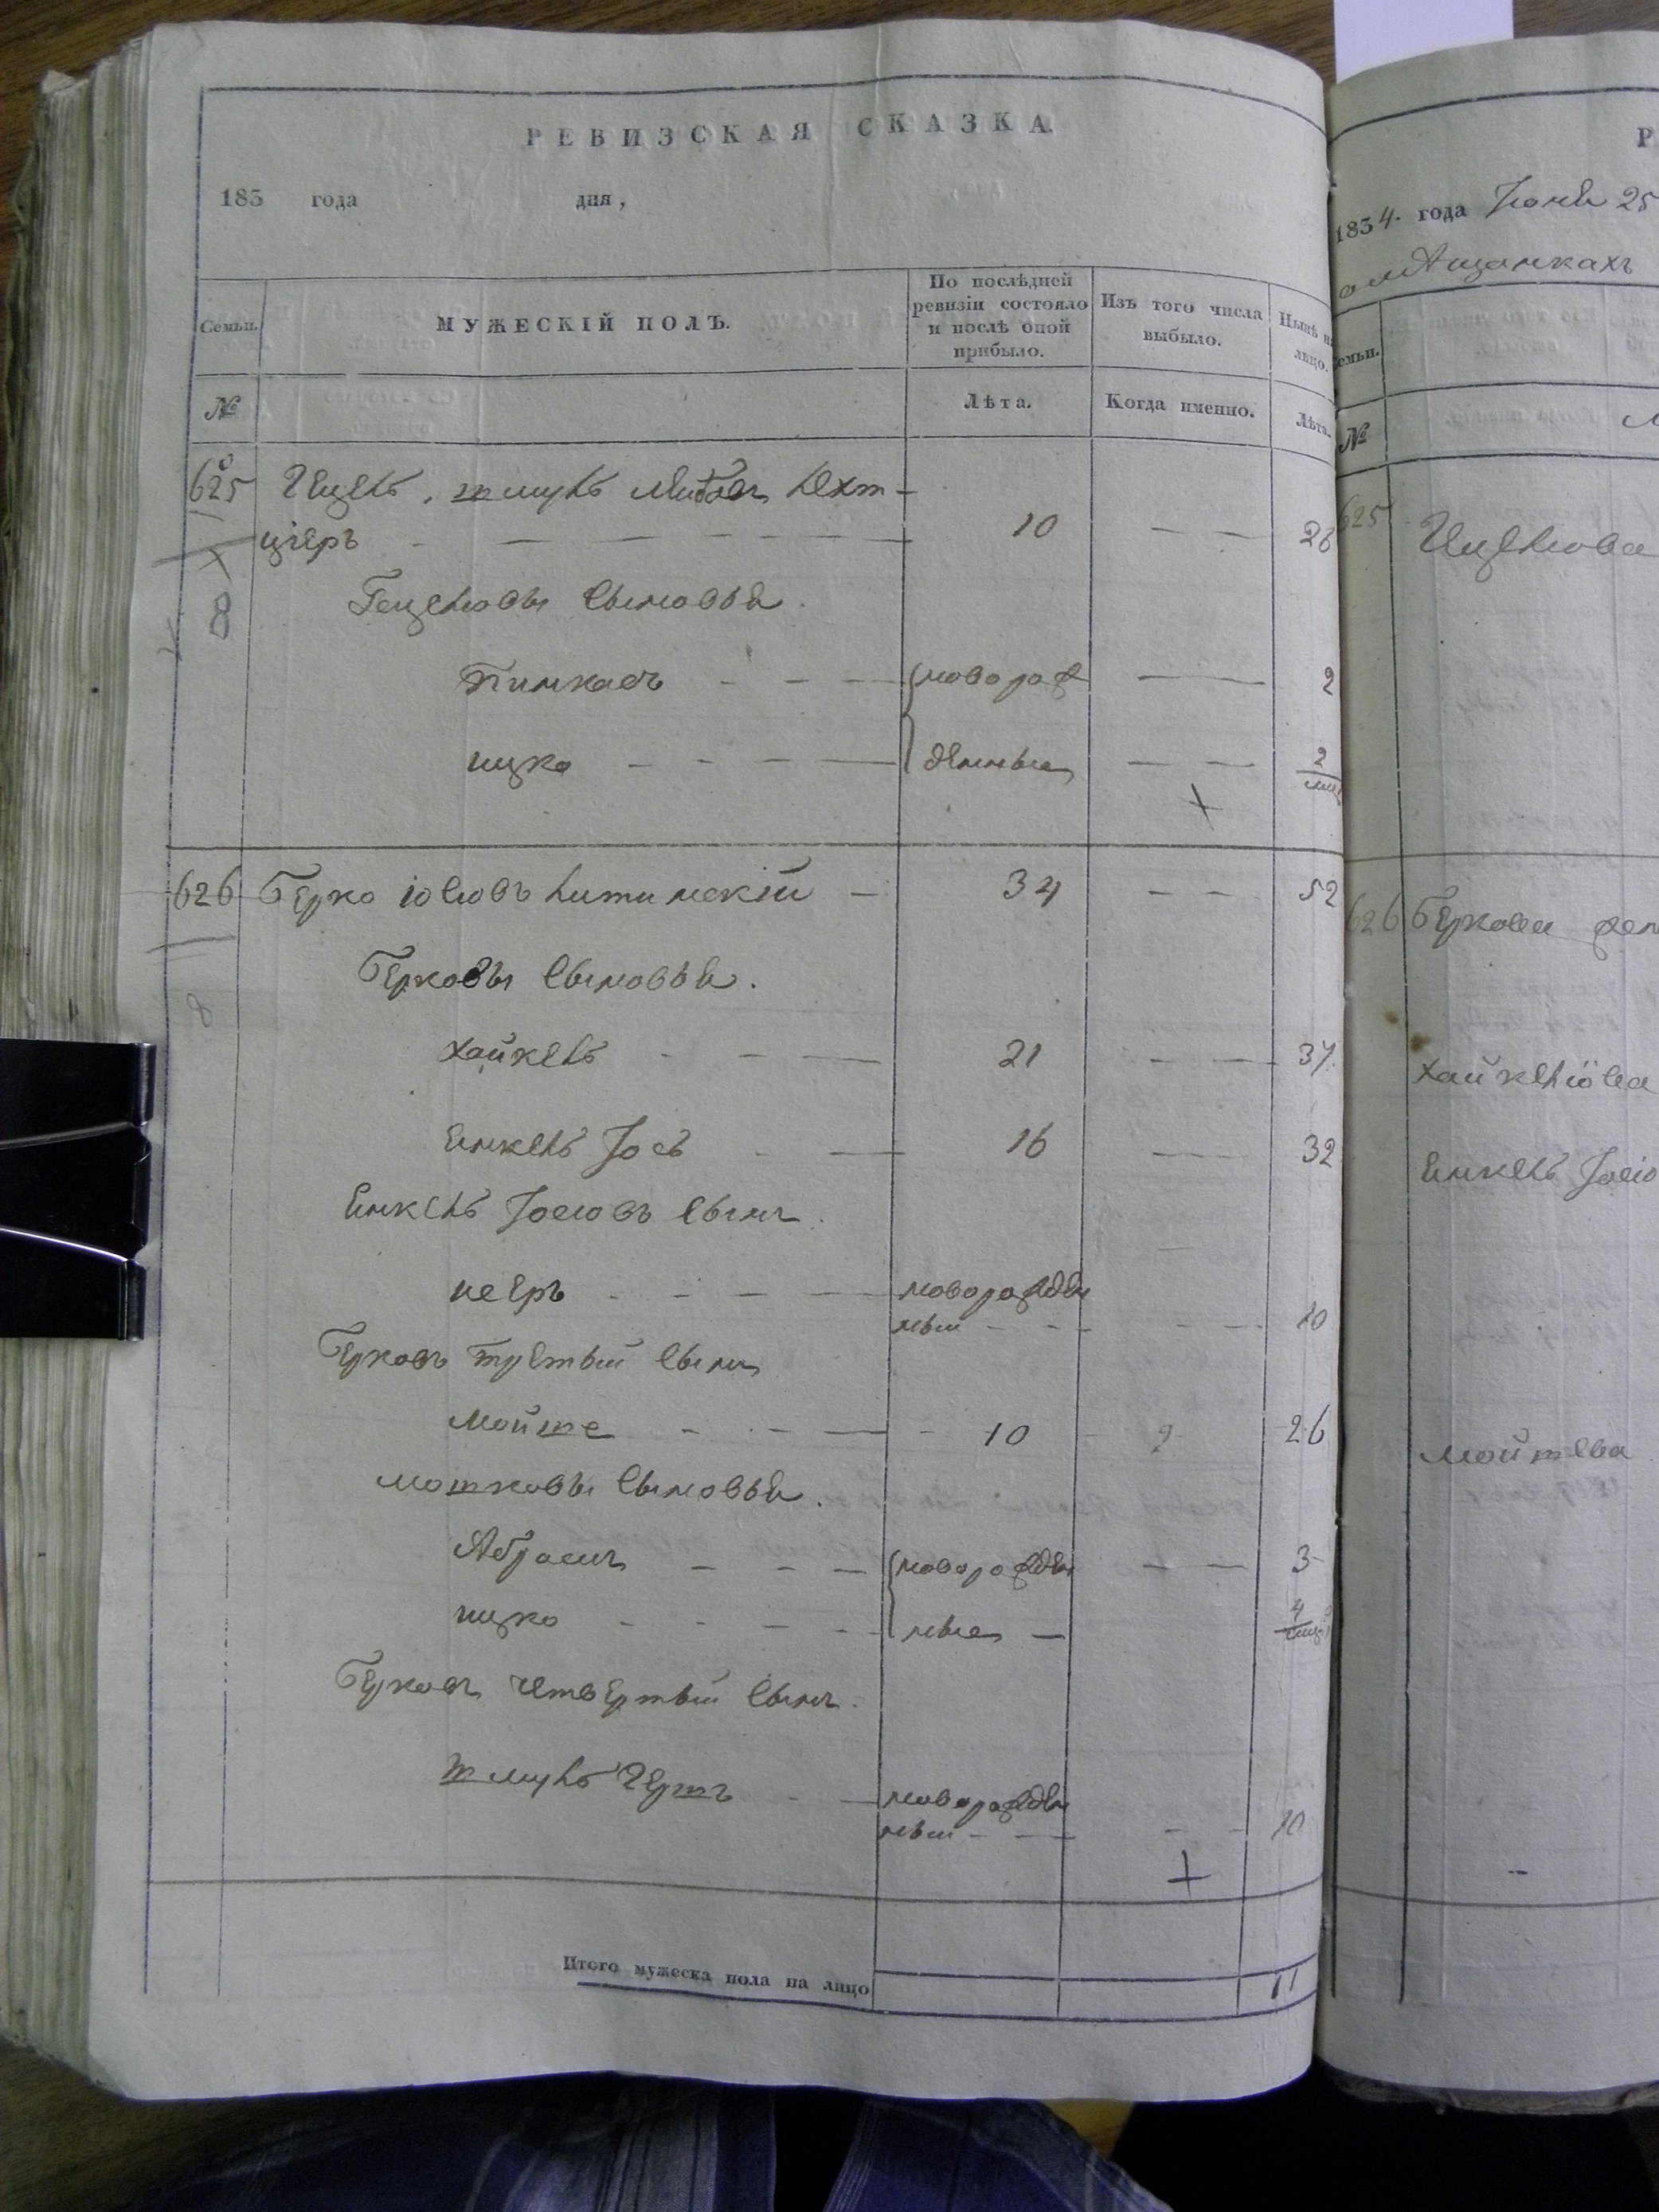 РЕВИЗСКАЯ СКАЗКА.
183 года дня,
Семьи.
МУЖЕСКІЙ ПОЛЪ.
По послѣдней ревизіи состояло и послѣ оной прибыло.
Изъ того числа выбыло.
Нынѣ на лицо.
№
Лѣта.
Когда именно.
Лѣта.
625
ціеръ 10 26
8
Гецелювы сыновья.
Пинкасъ новорож 2
ицко денные 2
626 Берко Іосювъ Литинскій 34 52
Берковы сыновья.
8
Хайкель 21 37
Енкель Іось 16 32
Енкель Іосювъ сынъ.
новорожден
ный 10
Берковъ третьій сынъ
Мойше 10 26
Мошковы сыновья.
Абрамъ новорожден 3
ицко ные 4
Берковъ четвертый сынъ.
Шмуль Гершъ новорожден
ный 10
Итого мужеска пола на лицо 11
Р
1834. года Іюня 25
о мѣщанкахъ
Семьи.
№
625 Ицелюва
626 Беркова жен
Хайкелюва
Енкель Іосю
Мойшева